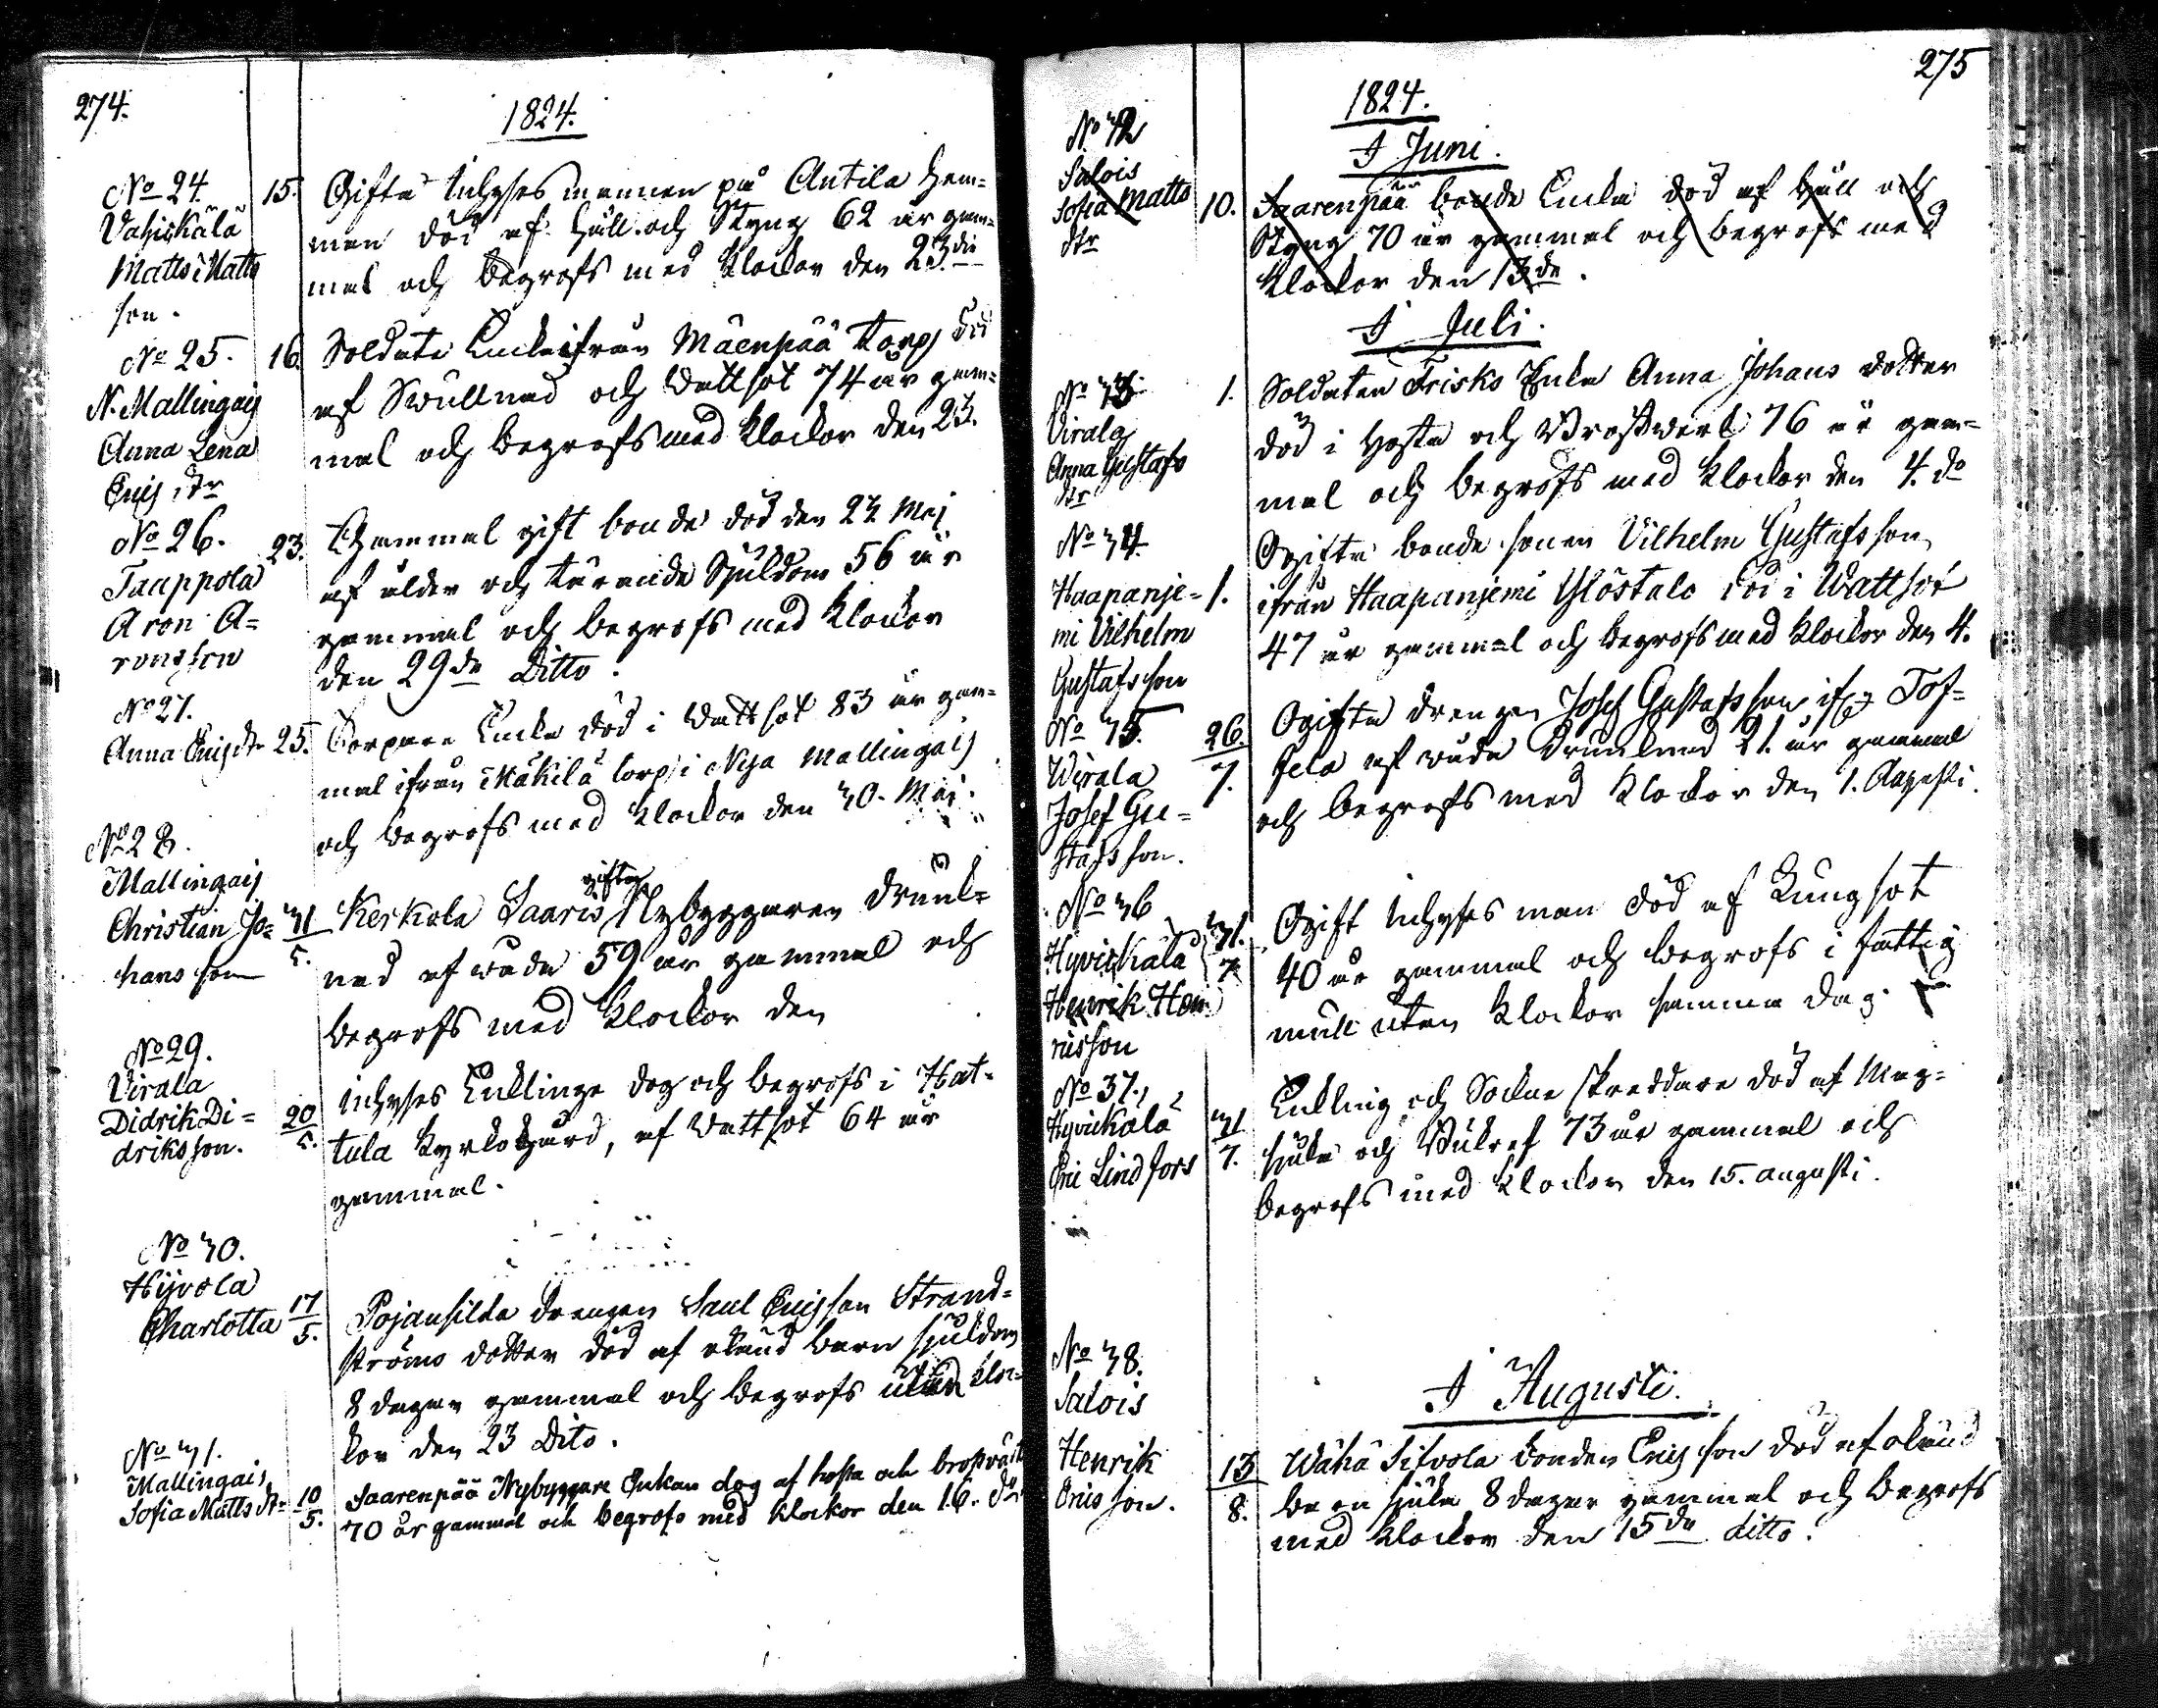 274.
1824.
No 24.
Vahiskälä
Matts Matts
son.
15. Gifta Inhyses mannen på Antila hem=
man död af Håll och Styng 62 år gam=
mal och begrofs med Klockor den 23die
No 25.
N. Mallingais
Anna Lena
Erics dtr
16. Soldats Enka ifrån Mäenpää Torp död
af Swullnad och Wattsot 74 år gam=
mal och begrofs med Klockor den 23.
No 26.
Tauppola
Aron A=
ronsson
23. Gammal gift bonde död den 23 Maj
af ålder och tärande Sjukdom 56 år
gammal och begrofs med Klockor
den 29de Ditto.
No 27.
Anna Ericsdtr
25. Torpare Enka död i Wattsot 83 år gam=
mal ifrån Mäkilä torp i Nya Mallingais
och begrofs med Klockor den 30. Maj.
No 28.
Mallingais
Christian Jo=
hansson
31
5.
Kerkola Saaris gifta Nybyggaren drunk=
nad af wåda 59 år gammal och
begrofs med Klockor den
No 29.
Virala
Didrik Di=
driksson.
20
5.
Inhyses Enklinge dog och begrofs i Hat=
tula Kyrkogård, af Wattsot 64 år
gammal.
No 30.
Hyvola
Charlotta
17
5.
Pojansilda drengen Saul Ericsson Strand=
ströms dotter död af okänd barn sjukdom
8 dagar gammal och begrofs utan kloc=
kor den 23 Dito.
No 31.
Mallingais
Sofia Matts dr
10
5.
Saarenpää Nybyggare Enkan dog af hosta och bröstvärk
70 år gammal och begrofs med klockor den 16. do
275
1824.
I Juni.
No 32
Salois
Sofia Matts
dtr
10. Saarenpää bonde Enka död af Håll och
Styng 70 år gammal och begrofs med
Klockor den 13de.
I Juli.
No 33
Virala
Anna Gustafs
dtr
1. Soldaten Frisks Enka Anna Johans dotter
död i Hosta och Bröstwärk 76 år gam=
mal och begrofs med Klockor den 4. do
No 34.
Haapanje=
mi Vilhelm
Gustafsson
1. Ogifta bonde sonen Vilhelm Gustafsson
ifrån Haapanjemi Ylöstalo död i Wattsot
47 år gammal och begrofs med Klockor den 4.
No 35.
Wirala
Josef Gu=
stafsson.
26.
7.
Ogifta drengen Josef Gustafsson ifrån Tof=
fela af wåda drunknad 21 år gammal
och begrofs med Klockor den 1. Augusti.
No 36
Hyvickälä
Henrik Hen
ricsson
31.
7.
Gift Inhyses man död af Lungsot
40 år gammal och begrofs i fattig
mull utan Klockor samma dag.
No 37.
Hyvickälä
Eric Lindfors
31
7.
Enkling och Sockne skreddare död af Mag=
sjuka och Bukref 73 år gammal och
begrofs med Klockor den 15. augusti.
I Augusti.
No 38.
Salois
Henrik
Ericsson.
13
8.
Wähä Sifvola bonden Ericsson död af okänd
barn sjuka 8 dagar gammal och begrofs
med Klockor den 15de ditto.